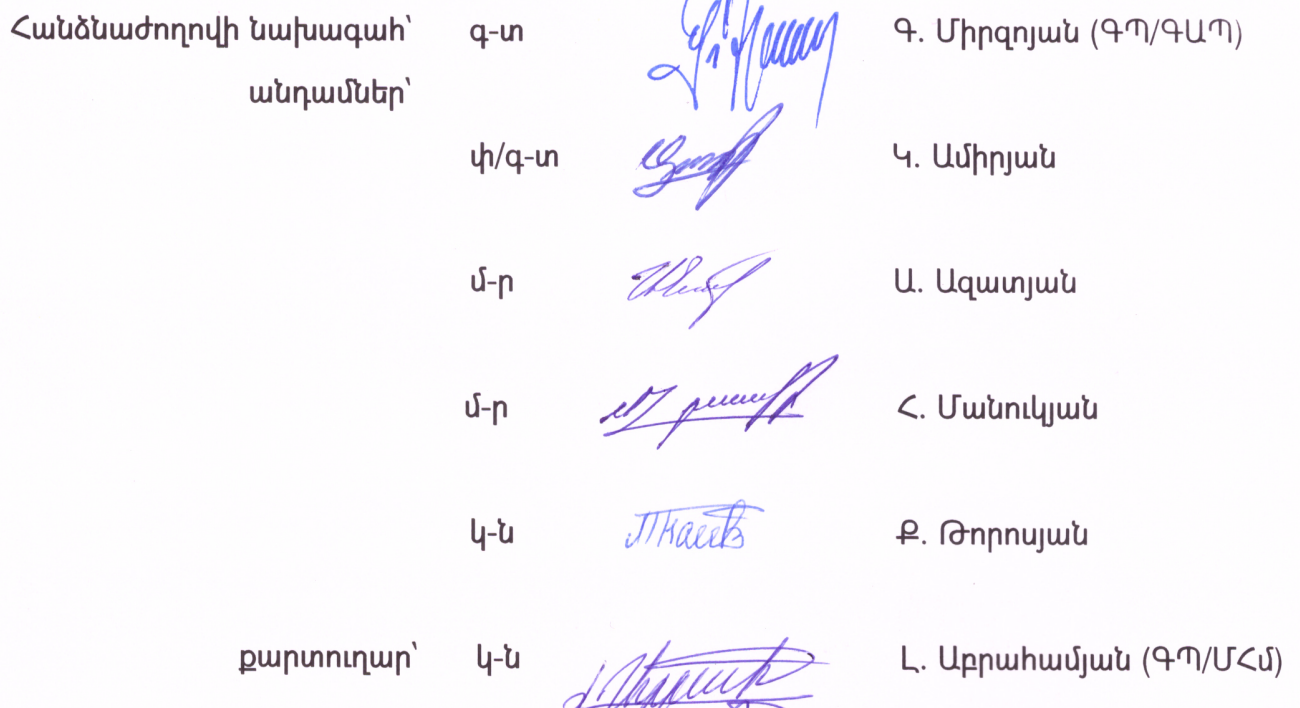 Հանձնաժողովի նախագահ՝ գ-տ Գ. Միրզոյան (ԳՊ/ԳԱՊ)
անդամներ՝
փ/գ-տ Կ. Ամիրյան
մ-ր Ա. Ազատյան
մ-ր Հ. Մանուկյան
կ-ն Ք. Թորոսյան
քարտուղար՝ կ-ն Լ. Աբրահամյան (ԳՊ/ՄՀմ)